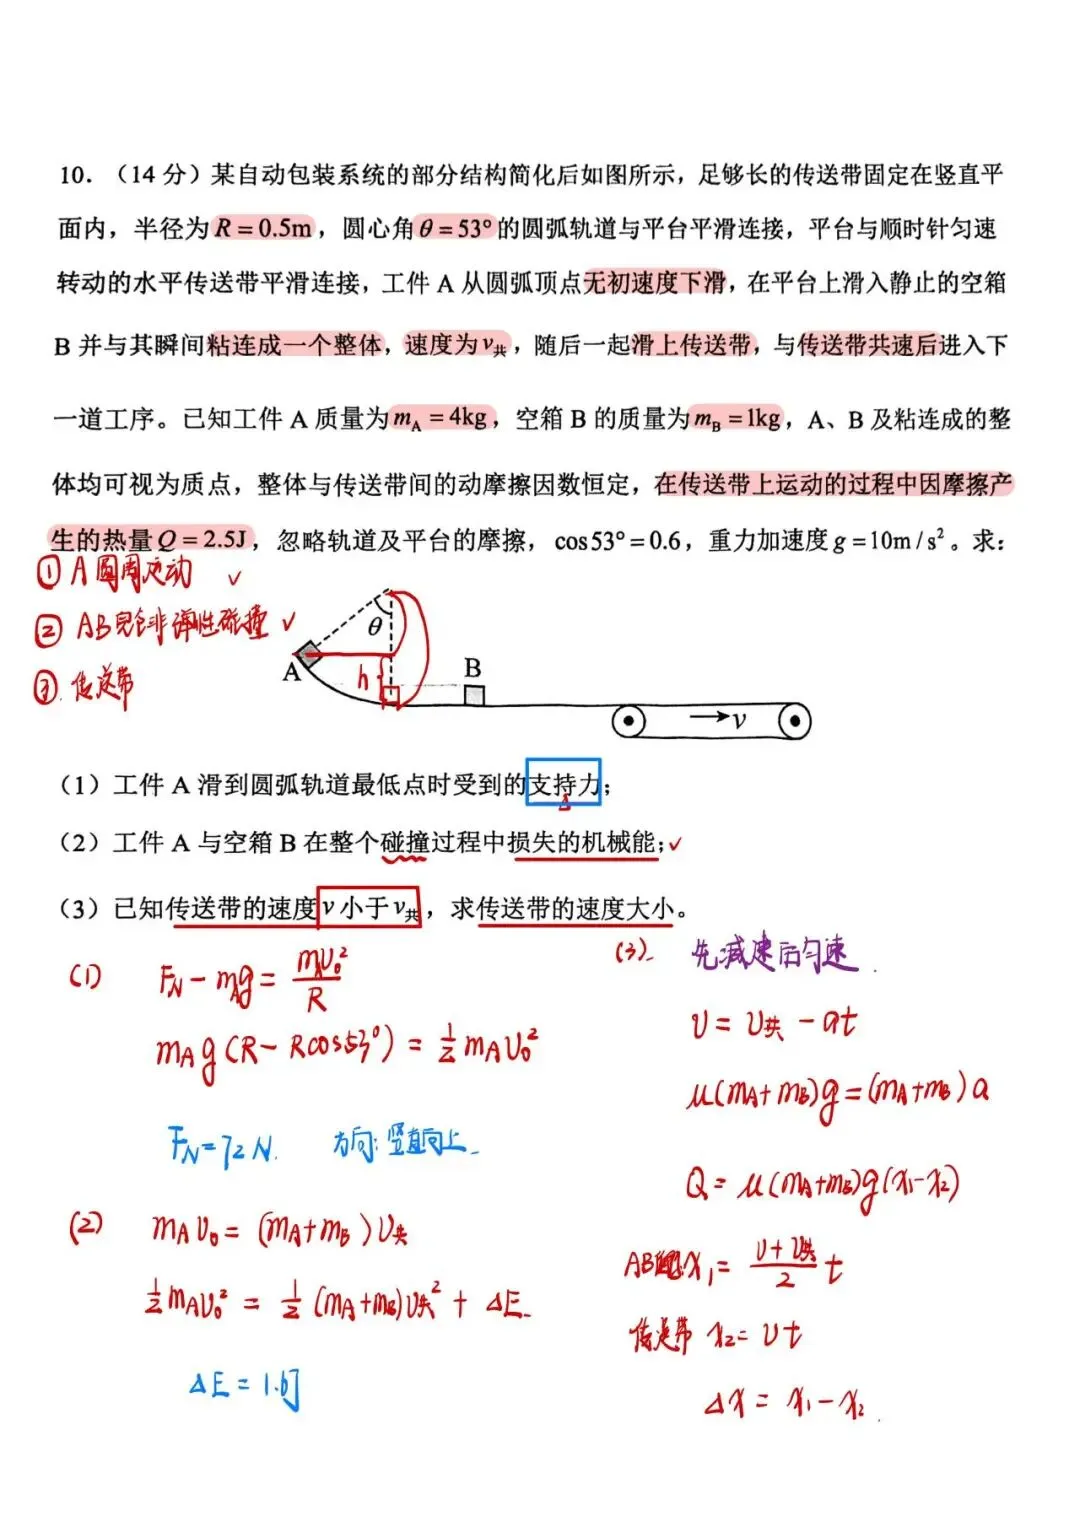 10. （14 分）某自动包装系统的部分结构简化后如图所示，足够长的传送带固定在竖直平
面内，半径为 R = 0.5m，圆心角 θ = 53° 的圆弧轨道与平台平滑连接，平台与顺时针匀速
转动的水平传送带平滑连接，工件 A 从圆弧顶点无初速度下滑，在平台上滑入静止的空箱
B 并与其瞬间粘连成一个整体，速度为 v共，随后一起滑上传送带，与传送带共速后进入下
一道工序。已知工件 A 质量为 mA = 4kg，空箱 B 的质量为 mB = 1kg，A、B 及粘连成的整
体均可视为质点，整体与传送带间的动摩擦因数恒定，在传送带上运动的过程中因摩擦产
生的热量 Q = 2.5J，忽略轨道及平台的摩擦，cos53° = 0.6，重力加速度 g = 10m/s²。求：
① A 圆周运动 ✓
② AB完全非弹性碰撞 ✓
③. 传送带
θ
A
h
B
v
（1）工件 A 滑到圆弧轨道最低点时受到的支持力；
（2）工件 A 与空箱 B 在整个碰撞过程中损失的机械能；✓
（3）已知传送带的速度 v 小于 v共，求传送带的速度大小。
(1) FN - mAg = mAv₀²/R
mAg(R - Rcos53°) = ½mAv₀²
FN = 72N. 方向：竖直向上
(2) mAv₀ = (mA+mB)v共
½mAv₀² = ½(mA+mB)v共² + ΔE
ΔE = 1.6J
(3). 先减速后匀速
v = v共 - at
μ(mA+mB)g = (mA+mB)a
Q = μ(mA+mB)g(x₁-x₂)
x₁ = (v+v共)/2 t
传送带 x₂ = vt
Δx = x₁ - x₂